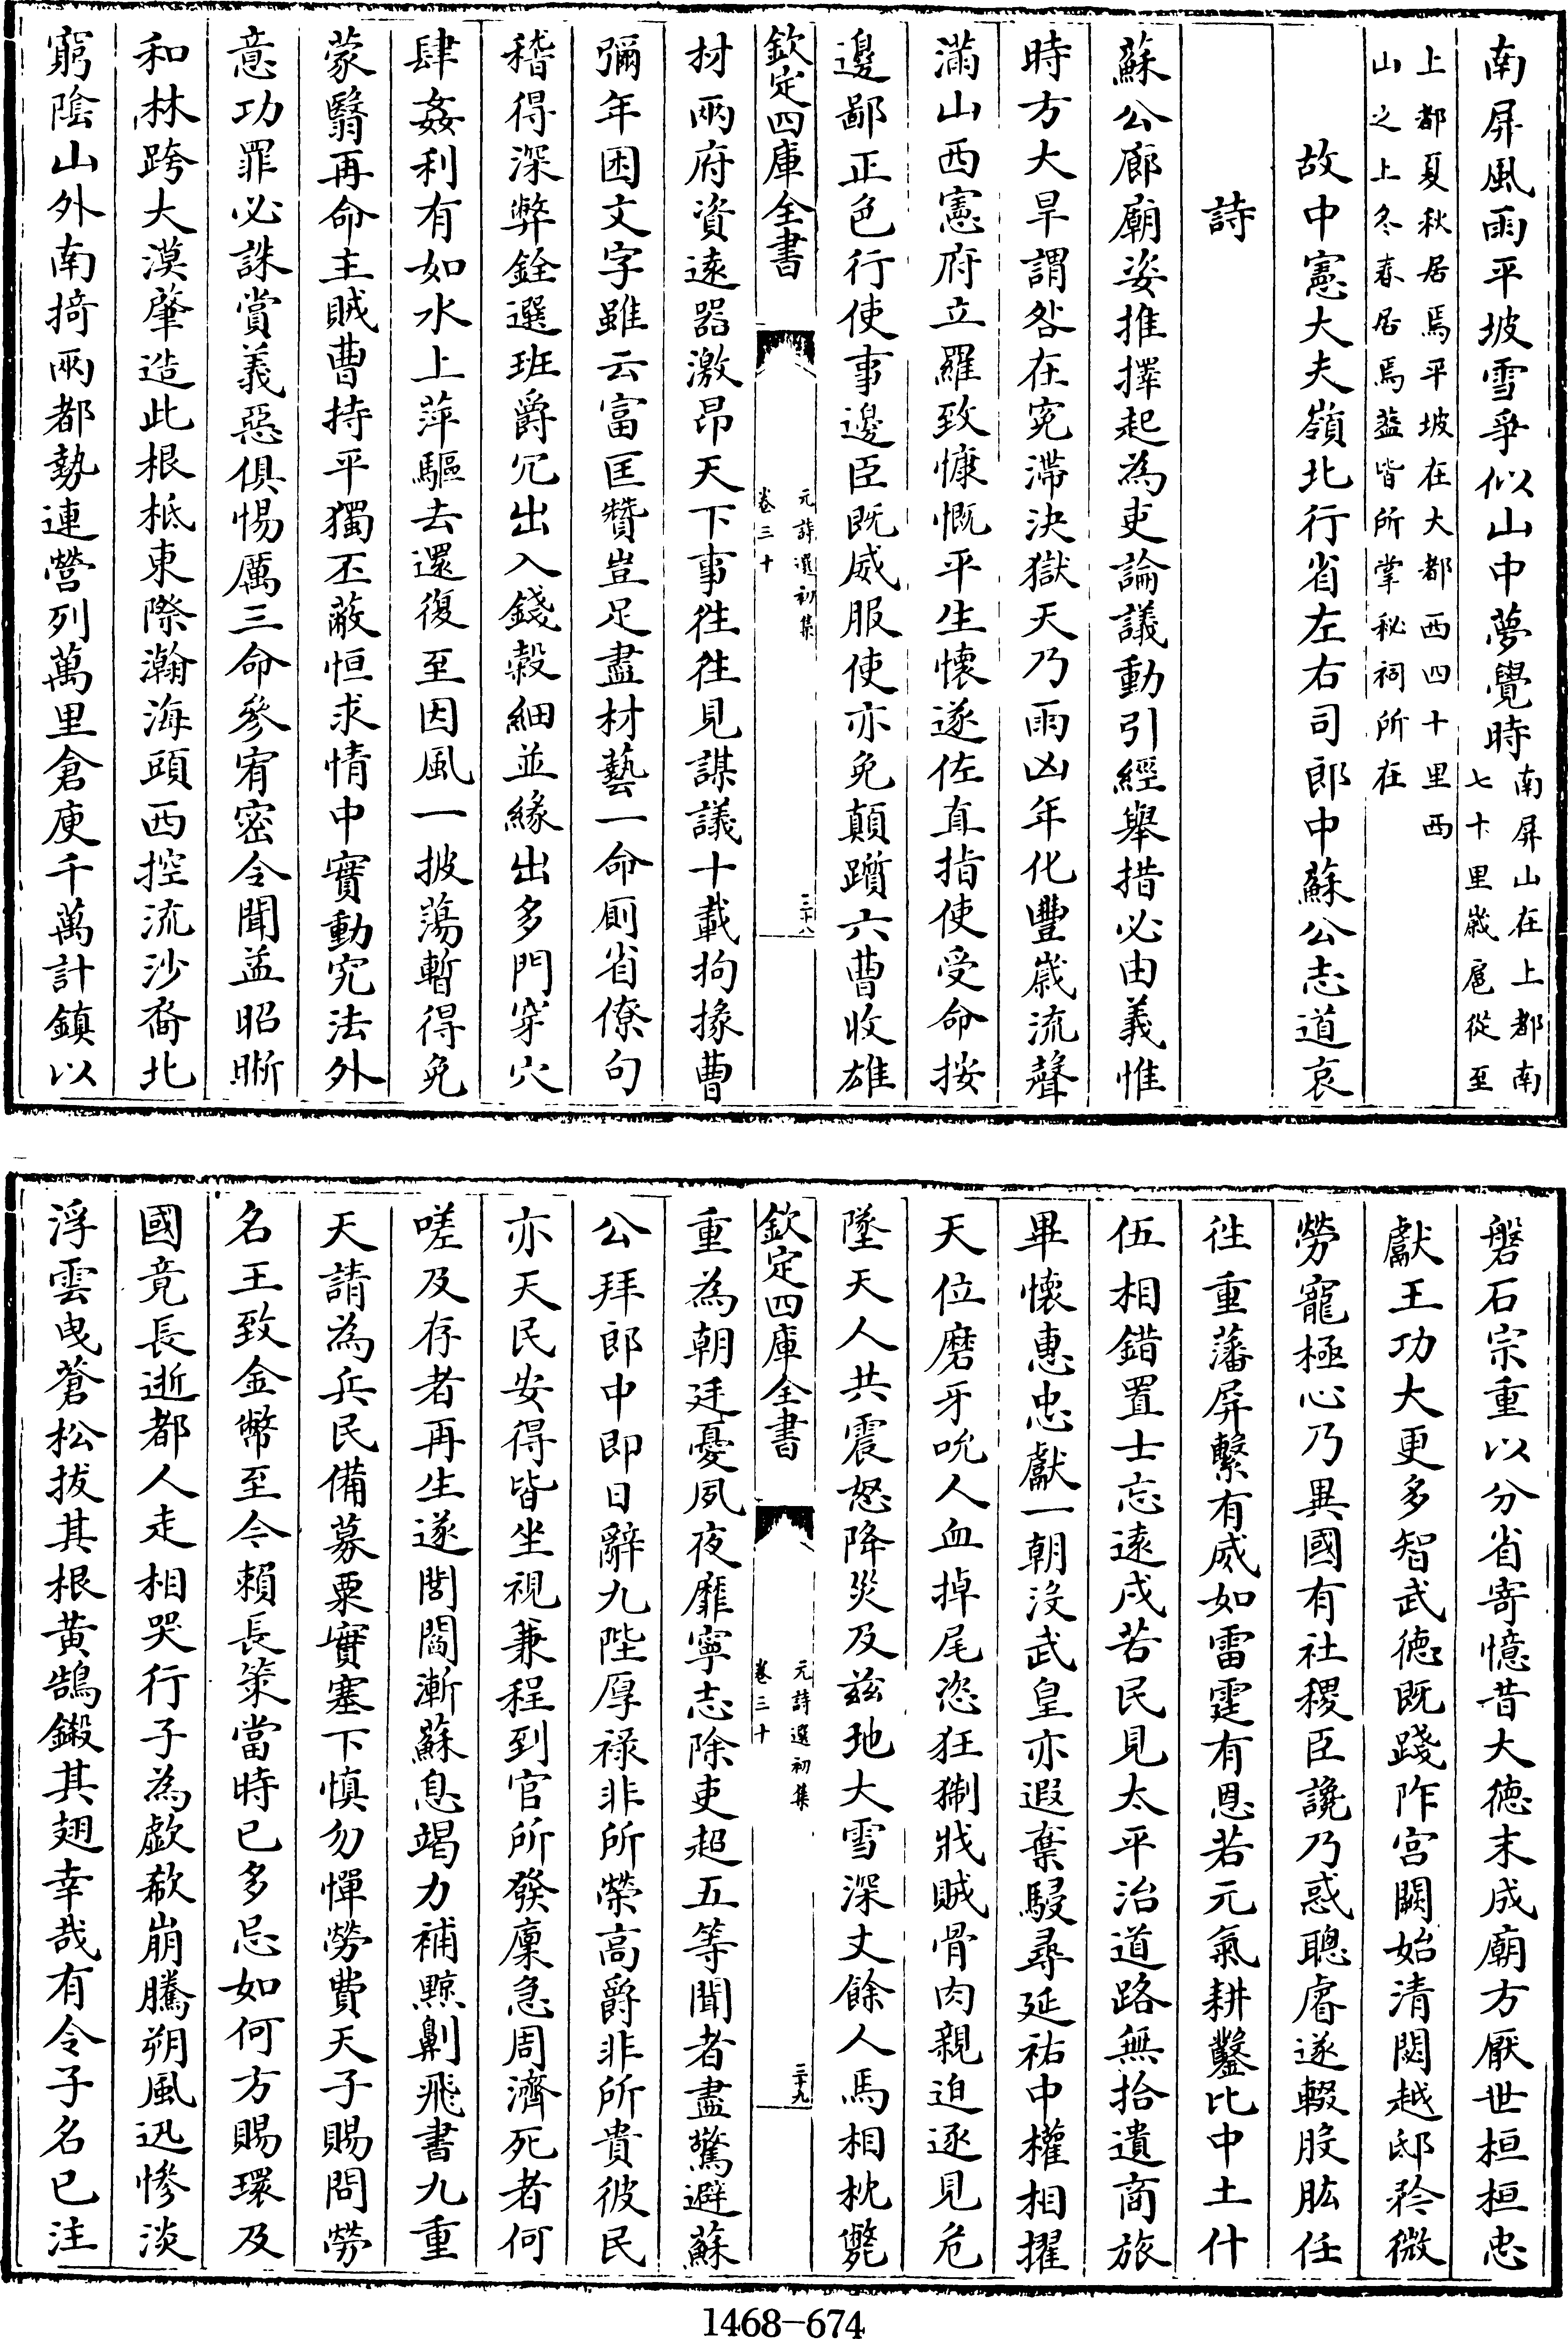 南屏風雨平坡雪爭似山中夢覺時南屏山在上都南
七十里歲扈從至
上都夏秋居焉平坡在大都西四十里西
山之上冬春居焉葢皆所掌秘祠所在
故中憲大夫嶺北行省左右司郎中蘇公志道哀
詩
蘇公廊廟姿推擇起為吏論議動引經舉措必由義惟
時方大旱謂咎在寃滯決獄天乃雨凶年化豐歲流聲
滿山西憲府立羅致慷慨平生懷遂佐直指使受命按
邊鄙正色行使事邊臣既威服使亦免顛躓六曹收雄
欽定四庫全書
元詩選初集
卷三十
三十八
材兩府資遠器激昂天下事徃徃見謀議十載拘掾曹
彌年困文字雖云富匡贊豈足盡材藝一命厠省僚句
稽得深弊銓選班爵冗出入錢穀細並緣出多門穿穴
肆姦利有如水上萍驅去還復至因風一披蕩暫得免
蒙翳再命主賊曹持平獨丕蔽恒求情中實動究法外
意功罪必誅賞義惡俱惕厲三命參宥密令聞益昭晰
和林跨大漠肇造此根柢東際瀚海頭西控流沙裔北
窮陰山外南掎兩都勢連營列萬里倉庾千萬計鎮以
磐石宗重以分省寄憶昔大徳末成廟方厭世桓桓忠
獻王功大更多智武徳既踐阼宮闕始清閟越邸矜微
勞寵極心乃異國有社稷臣讒乃惑聰睿遂輟股肱任
徃重藩屏繫有威如雷霆有恩若元氣耕鑿比中土什
伍相錯置士忘遠戍苦民見太平治道路無拾遺商旅
畢懷惠忠獻一朝沒武皇亦遐棄駸尋延祐中權相擢
天位磨牙吮人血掉尾恣狂猘戕賊骨肉親迫逐見危
墜天人共震怒降災及兹地大雪深丈餘人馬相枕斃
欽定四庫全書
元詩選初集
卷三十
三十九
重為朝廷憂夙夜靡寧志除吏超五等聞者盡驚避蘇
公拜郎中即日辭九陛厚祿非所榮高爵非所貴彼民
亦天民安得皆坐視兼程到官所發廩急周濟死者何
嗟及存者再生遂閭閻漸蘇息竭力補黥劓飛書九重
天請為兵民備募粟實塞下慎勿憚勞費天子賜問勞
名王致金幣至今賴長策當時已多忌如何方賜環及
國竟長逝都人走相哭行子為歔欷崩騰朔風迅慘淡
浮雲曳蒼松拔其根黃鵠鎩其翅幸哉有令子名已注
1468-674